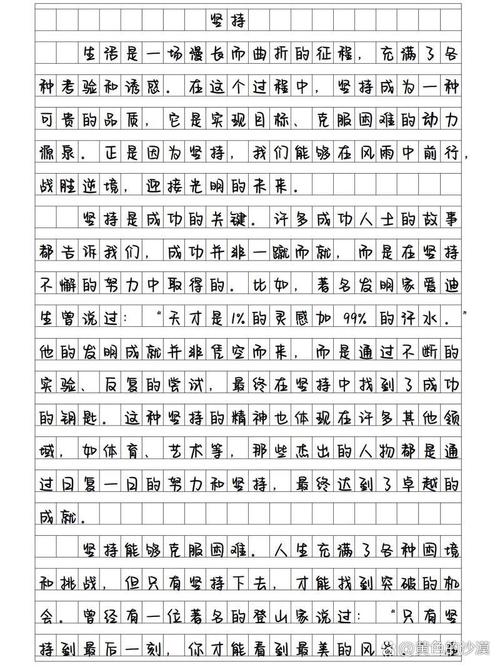 坚持
生活是一场漫长而曲折的征程，充满了各
种考验和诱惑。在这个过程中，坚持成为一种
可贵的品质，它是实现目标、克服困难的动力
源泉。正是因为坚持，我们能够在风雨中前行，
战胜逆境，迎接光明的未来。
坚持是成功的关键。许多成功人士的故事
都告诉我们，成功并非一蹴而就，而是在坚持
不懈的努力中取得的。比如，著名发明家爱迪
生曾说过：“天才是1%的灵感加99%的汗水。”
他的发明成就并非凭空而来，而是通过不断的
实验、反复的尝试，最终在坚持中找到了成功
的钥匙。这种坚持的精神也体现在许多其他领
域，如体育、艺术等，那些杰出的人物都是通
过日复一日的努力和坚持，最终达到了卓越的
成就。
坚持能够克服困难。人生充满了各种困境
和挑战，但只有坚持下去，才能找到突破的机
会。曾经有一位著名的登山家说过：“只有坚
持到最后一刻，你才能看到最美的风
沙漠